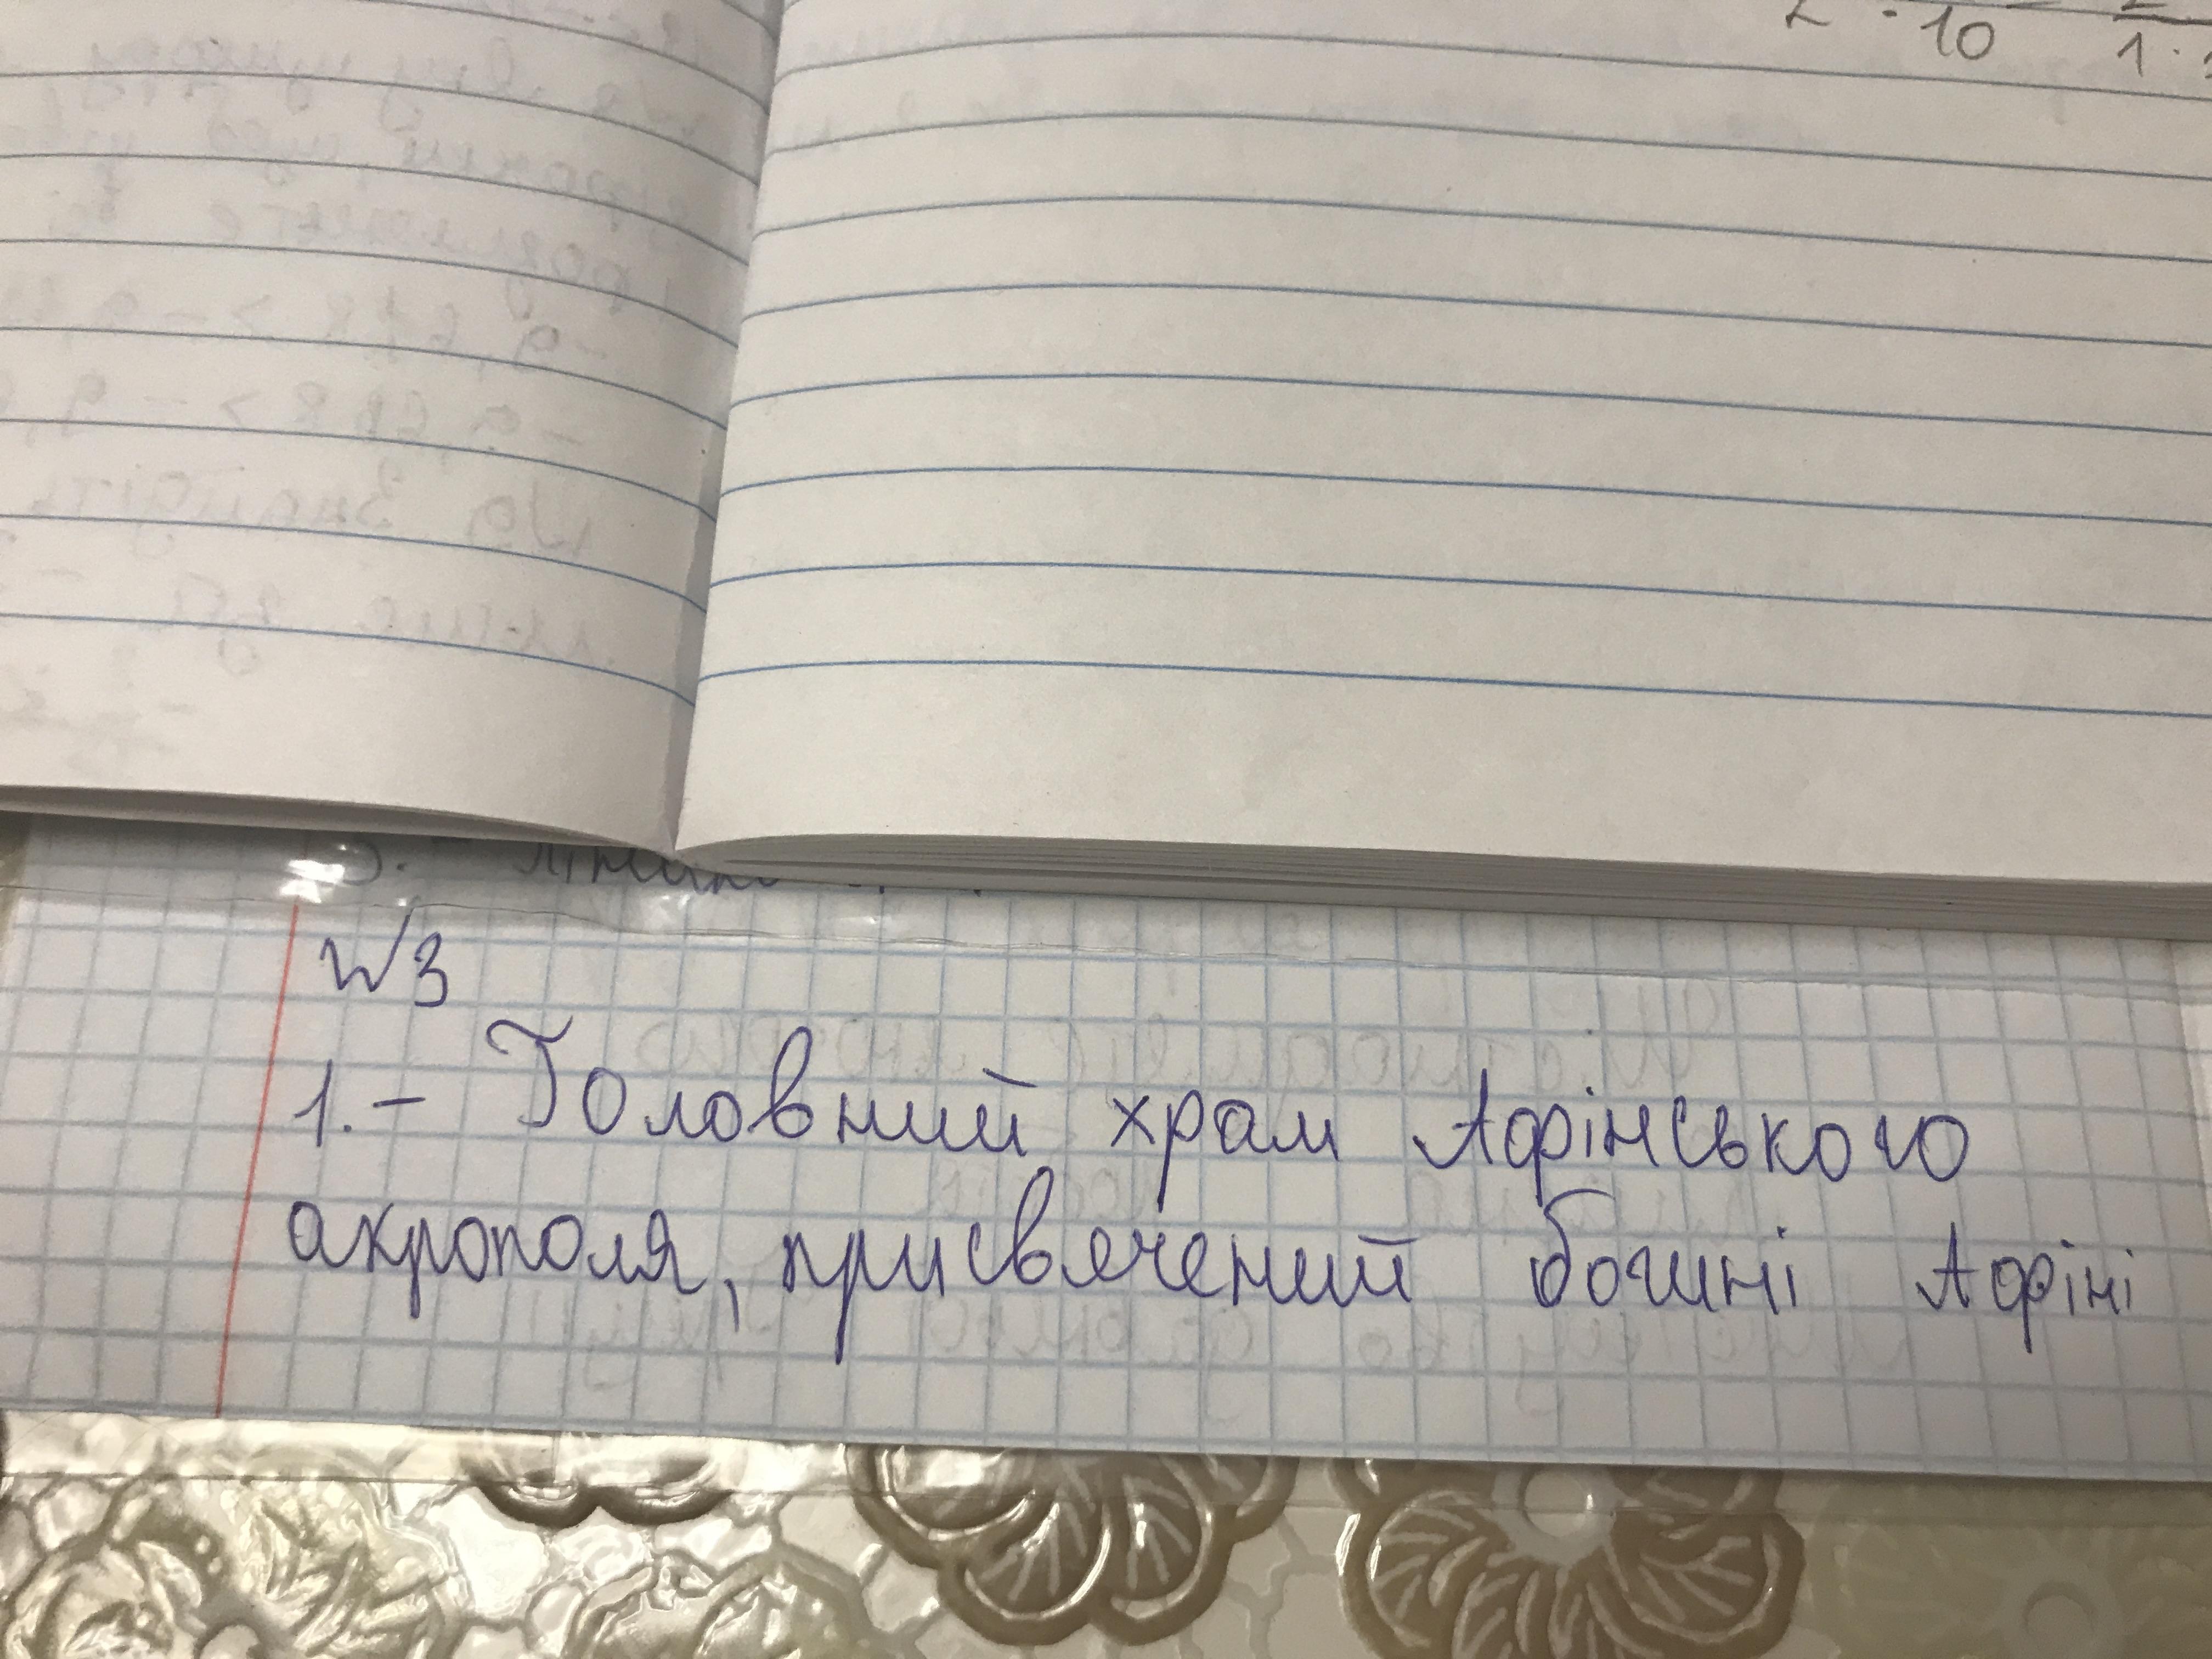 10
№3
1. – Головний храм Афінського
акрополя, присвячений богині Афіні